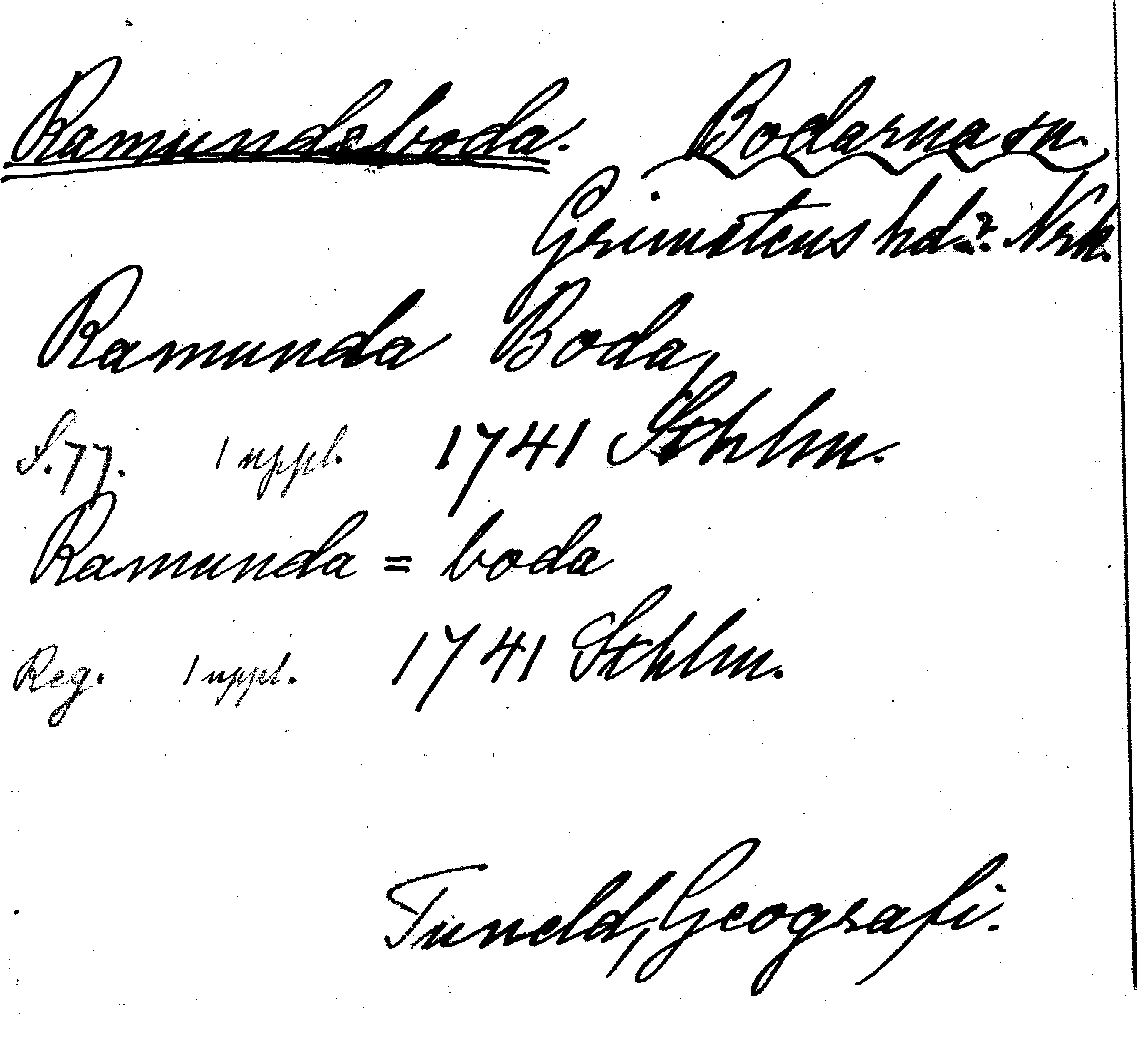 Ramundeboda. Bodarna sn.
Grimstens hd? Nrk.
Ramunda Boda,
S. 77. 1 uppl. 1741 Sthlm.
Ramunda = boda
Reg. 1 uppl. 1741 Sthlm.
Tuneld, Geografi.